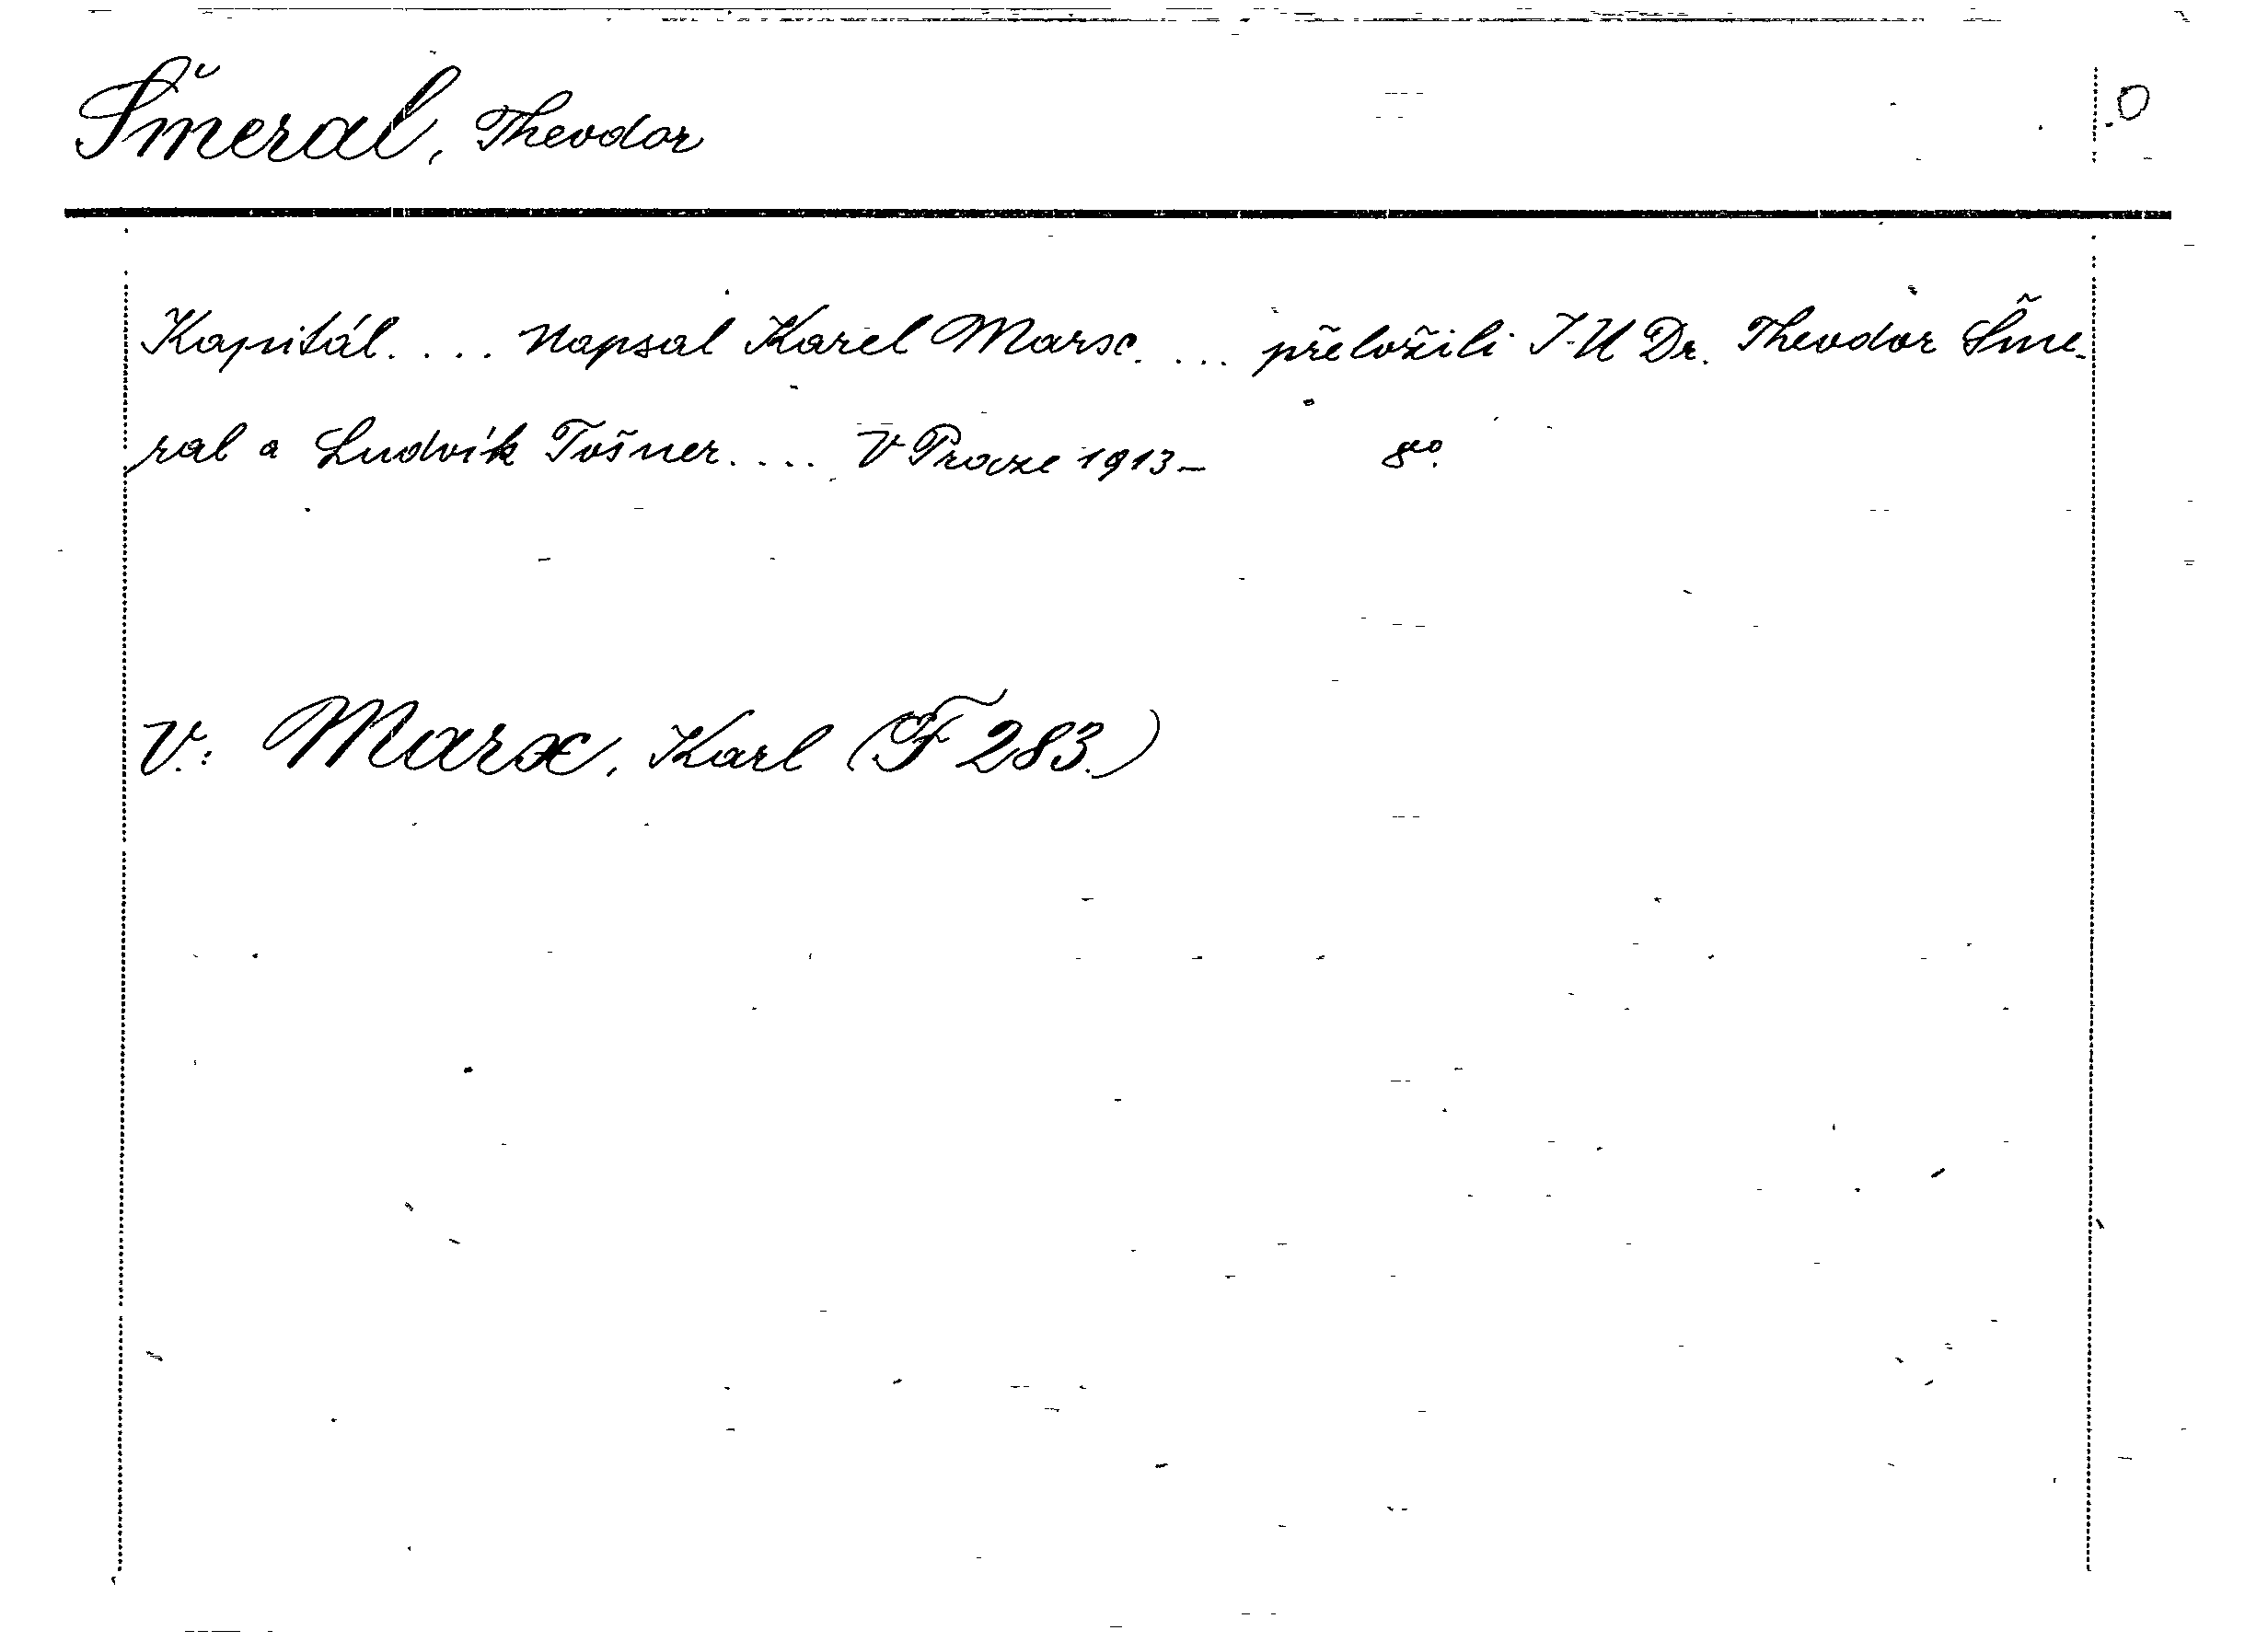 Šmeral, Theodor
O
Kapitál.... Napsal Karel Marx.... přeložili J.U Dr. Theodor Šme-
ral a Ludvík Tošner.... V Praze 1913— 8º.
V.: Marx, Karl (F 283.)